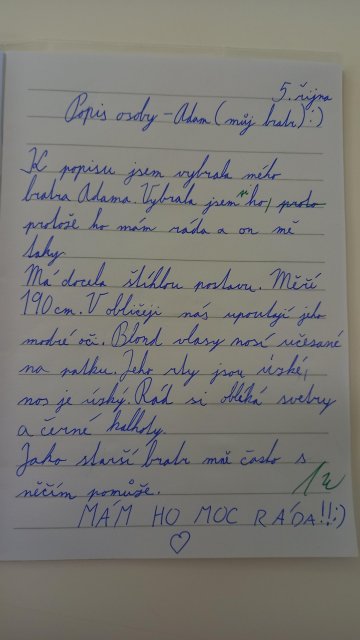 5. října
Popis osoby - Adam (můj bratr) :)
K popisu jsem vybrala mého
bratra Adama. Vybrala jsem ho, proto
protože ho mám ráda a on mě
taky.
Má docela štíhlou postavu. Měří
190 cm. V obličeji nás upoutají jeho
modré oči. Blond vlasy nosí učesané
na patku. Jeho rty jsou úzké,
nos je úzký. Rád si obléká svetry
a černé kalhoty.
Jako starší bratr mně často s
něčím pomůže.
MÁM HO MOC RÁDA!!:)